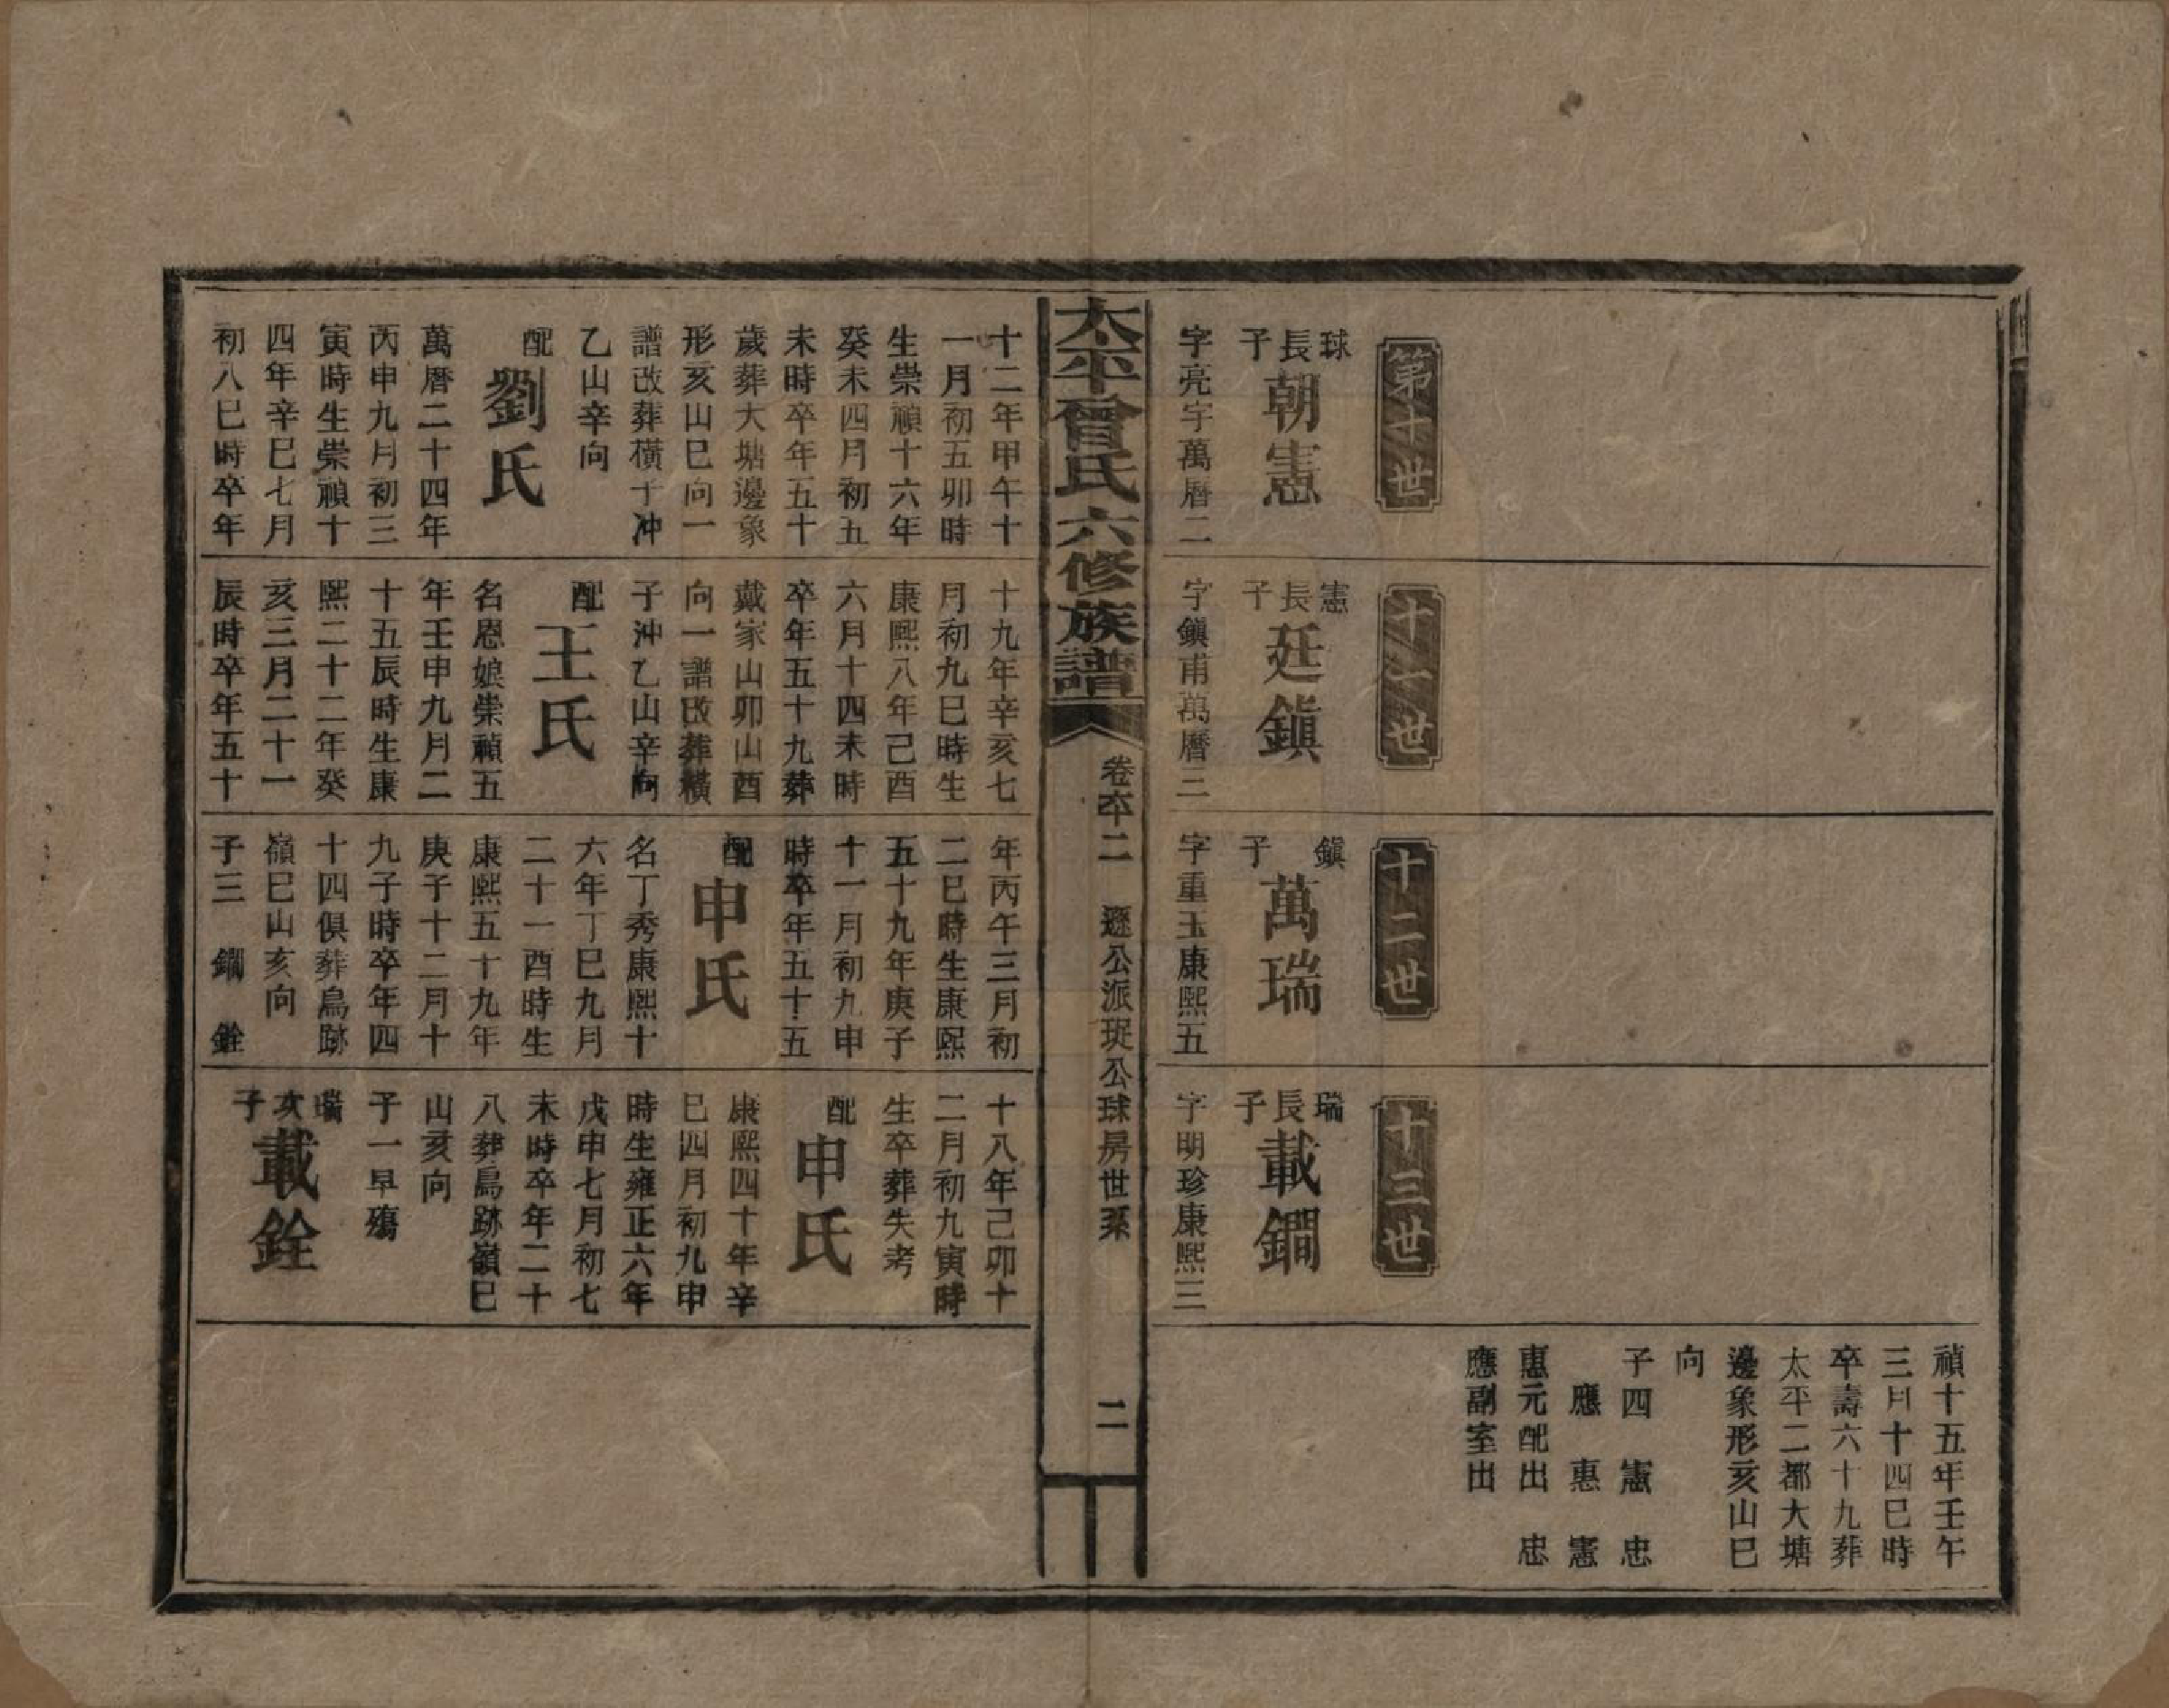 禎十五年壬午
三月十四巳時
卒壽六十九葬
太平二都大塘
邊象形亥山巳
向
子四 憲 忠
應 惠 憲
惠元配出 忠
應副室出
第十世
球長子
朝憲
字亮宇萬曆二
十二年甲午十
一月初五卯時
生崇禎十六年
癸未四月初五
未時卒年五十
歲葬大塘邊象
形亥山巳向一
譜改葬橫于冲
乙山辛向
配
劉氏
萬曆二十四年
丙申九月初三
寅時生崇禎十
四年辛巳七月
初八巳時卒年
十一世
憲長子
廷鎭
字鎭甫萬曆三
十九年辛亥七
月初九巳時生
康熙八年己酉
六月十四未時
卒年五十九葬
戴家山卯山酉
向一譜改葬橫
子沖乙山辛向
配
王氏
名恩娘崇禎五
年壬申九月二
十五辰時生康
熙二十二年癸
亥三月二十一
辰時卒年五十
十二世
鎭子
萬瑞
字重玉康熙五
年丙午三月初
二巳時生康熙
五十九年庚子
十一月初九申
時卒年五十五
配
申氏
名丁秀康熙十
六年丁巳九月
二十一酉時生
康熙五十九年
庚子十二月十
九子時卒年四
十四俱葬鳥跡
嶺巳山亥向
子三 鐗 銓
十三世
瑞長子
載鐗
字明珍康熙三
十八年己卯十
二月初九寅時
生卒葬失考
配
申氏
康熙四十年辛
巳四月初九申
時生雍正六年
戊申七月初七
未時卒年二十
八葬鳥跡嶺巳
山亥向
子一早殤
瑞次子
載銓
太平曾氏六修族譜
卷卒二 遜公派珽公球房世系
二